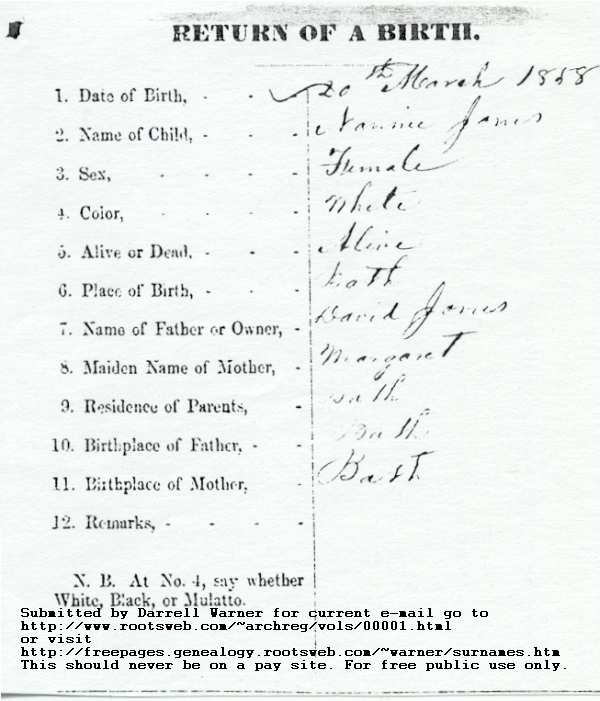 RETURN OF A BIRTH.
1. Date of Birth, - - 20th March 1858
2. Name of Child, - - - Nannie Jones
3. Sex, - - - - Female
4. Color, - - - - White
5. Alive or Dead, - - - Alive
6. Place of Birth, - - - Bath
7. Name of Father or Owner, - David Jones
8. Maiden Name of Mother, - Margaret
9. Residence of Parents, - Bath
10. Birthplace of Father, - - Bath
11. Birthplace of Mother, - Bath
12. Remarks, - - - -
N. B. At No. 4, say whether
White, Black, or Mulatto.
Submitted by Darrell Warner for current e-mail go to
http://www.rootsweb.com/~archreg/vols/00001.html
or visit
http://freepages.genealogy.rootsweb.com/~warner/surnames.htm
This should never be on a pay site. For free public use only.